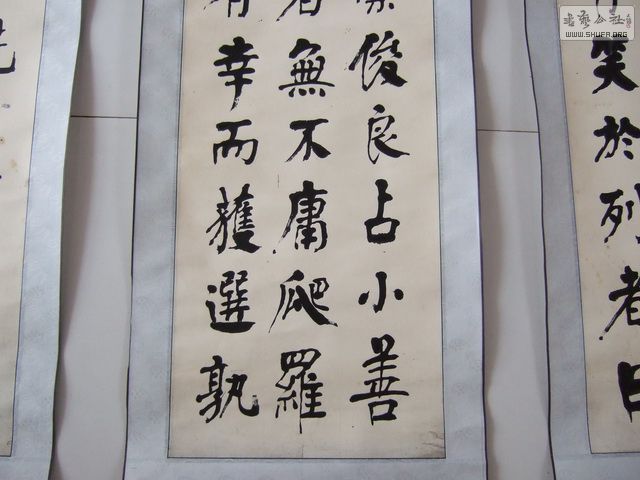 笑於列者曰
俊良占小善
者無不庸爬羅
有幸而獲選孰
書藝公社
WWW.SHUFA.ORG